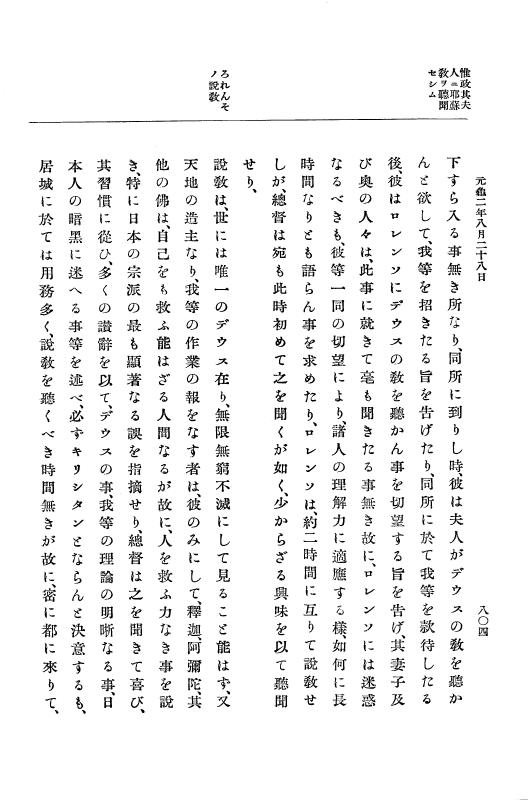 元龜二年八月二十八日
八〇四
惟政其夫
人ニ耶蘇
敎ヲ聽聞
セシム
ろれんそ
ノ說敎
下すら入る事無き所なり、同所に到りし時、彼は夫人がデウスの敎を聽か
んと欲して、我等を招きたる旨を告げたり、同所に於て我等を款待したる
後、彼はロレンソにデウスの敎を聽かん事を切望する旨を告げ、其妻子及
び奧の人々は、此事に就きて毫も聞きたる事無き故に、ロレンソには迷惑
なるべきも、彼等一同の切望により、諸人の理解力に適應する樣、如何に長
時間なりとも語らん事を求めたり、ロレンソは、約二時間に亙りて說敎せ
しが、總督は宛も此時初めて之を聞くが如く、少からざる興味を以て聽聞
せり、
說敎は、世には唯一のデウス在り、無限無窮不滅にして見ること能はず、又
天地の造主なり、我等の作業の報をなす者は、彼のみにして、釋迦、阿彌陀、其
他の佛は、自己をも救ふ能はざる人間なるが故に、人を救ふ力なき事を說
き、特に日本の宗派の最も顯著なる誤を指摘せり、總督は之を聞きて喜び、
其習慣に從ひ、多くの讚辭を以てデウスの事、我等の理論の明晰なる事、日
本人の暗黑に迷へる事等を述べ、必ずキリシタンとならんと決意するも、
居城に於ては用務多く、說敎を聽くべき時間無きが故に、密に都に來りて、